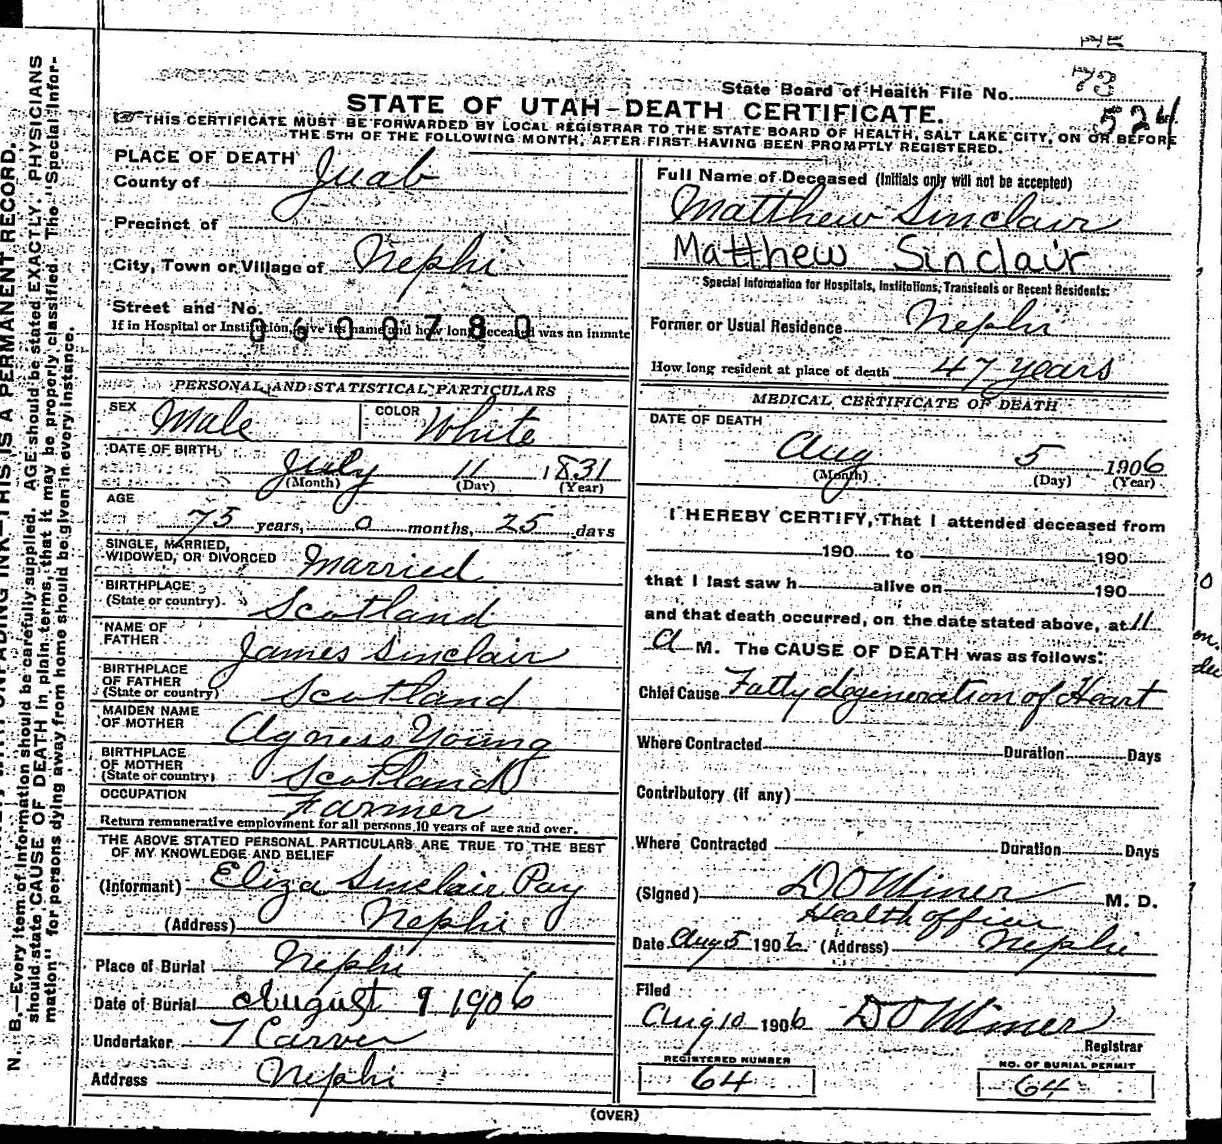 73
State Board of Health File No.
524
STATE OF UTAH—DEATH CERTIFICATE.
THIS CERTIFICATE MUST BE FORWARDED BY LOCAL REGISTRAR TO THE STATE BOARD OF HEALTH, SALT LAKE CITY, ON OR BEFORE
THE 5TH OF THE FOLLOWING MONTH, AFTER FIRST HAVING BEEN PROMPTLY REGISTERED.
PLACE OF DEATH
County of Juab
Precinct of
City, Town or Village of Nephi
Street and No.
If in Hospital or Institution, give its name and how long deceased was an inmate
0600780
PERSONAL AND STATISTICAL PARTICULARS
SEX Male COLOR White
DATE OF BIRTH July 11 1831
(Month) (Day) (Year)
AGE
75 years, 0 months, 25 days
SINGLE, MARRIED,
WIDOWED, OR DIVORCED Married
BIRTHPLACE
(State or country) Scotland
NAME OF
FATHER James Sinclair
BIRTHPLACE
OF FATHER
(State or country) Scotland
MAIDEN NAME
OF MOTHER Agness Young
BIRTHPLACE
OF MOTHER
(State or country) Scotland
OCCUPATION Farmer
Return remunerative employment for all persons 10 years of age and over.
THE ABOVE STATED PERSONAL PARTICULARS ARE TRUE TO THE BEST
OF MY KNOWLEDGE AND BELIEF
(Informant) Eliza Sinclair Pay
(Address) Nephi
Place of Burial Nephi
Date of Burial August 9 1906
Undertaker T Carver
Address Nephi
Full Name of Deceased (Initials only will not be accepted)
Matthew Sinclair
Matthew Sinclair
Special Information for Hospitals, Institutions, Transients or Recent Residents:
Former or Usual Residence Nephi
How long resident at place of death 47 years
MEDICAL CERTIFICATE OF DEATH
DATE OF DEATH
Aug 5 1906
(Month) (Day) (Year)
I HEREBY CERTIFY, That I attended deceased from
190 to 190
that I last saw h alive on 190
and that death occurred, on the date stated above, at 11
A M. The CAUSE OF DEATH was as follows:
Chief Cause Fatty degeneration of Heart
Where Contracted Duration Days
Contributory (if any)
Where Contracted Duration Days
(Signed) D O Miner M. D.
Health officer
Date Aug 5 1906 (Address) Nephi
Filed
Aug 10 1906 D O Miner
Registrar
REGISTERED NUMBER
64
NO. OF BURIAL PERMIT
64
(OVER)
N. B.—Every item of information should be carefully supplied. AGE should be stated EXACTLY. PHYSICIANS
should state CAUSE OF DEATH in plain terms, that it may be properly classified. The "Special Infor-
mation" for persons dying away from home should be given in every instance.